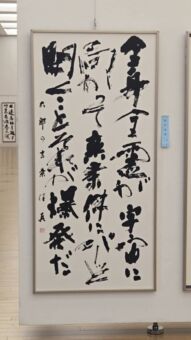 全身全霊が宇宙に
向かって無条件にパーッと
開くことそれが爆発だ
太郎の言葉